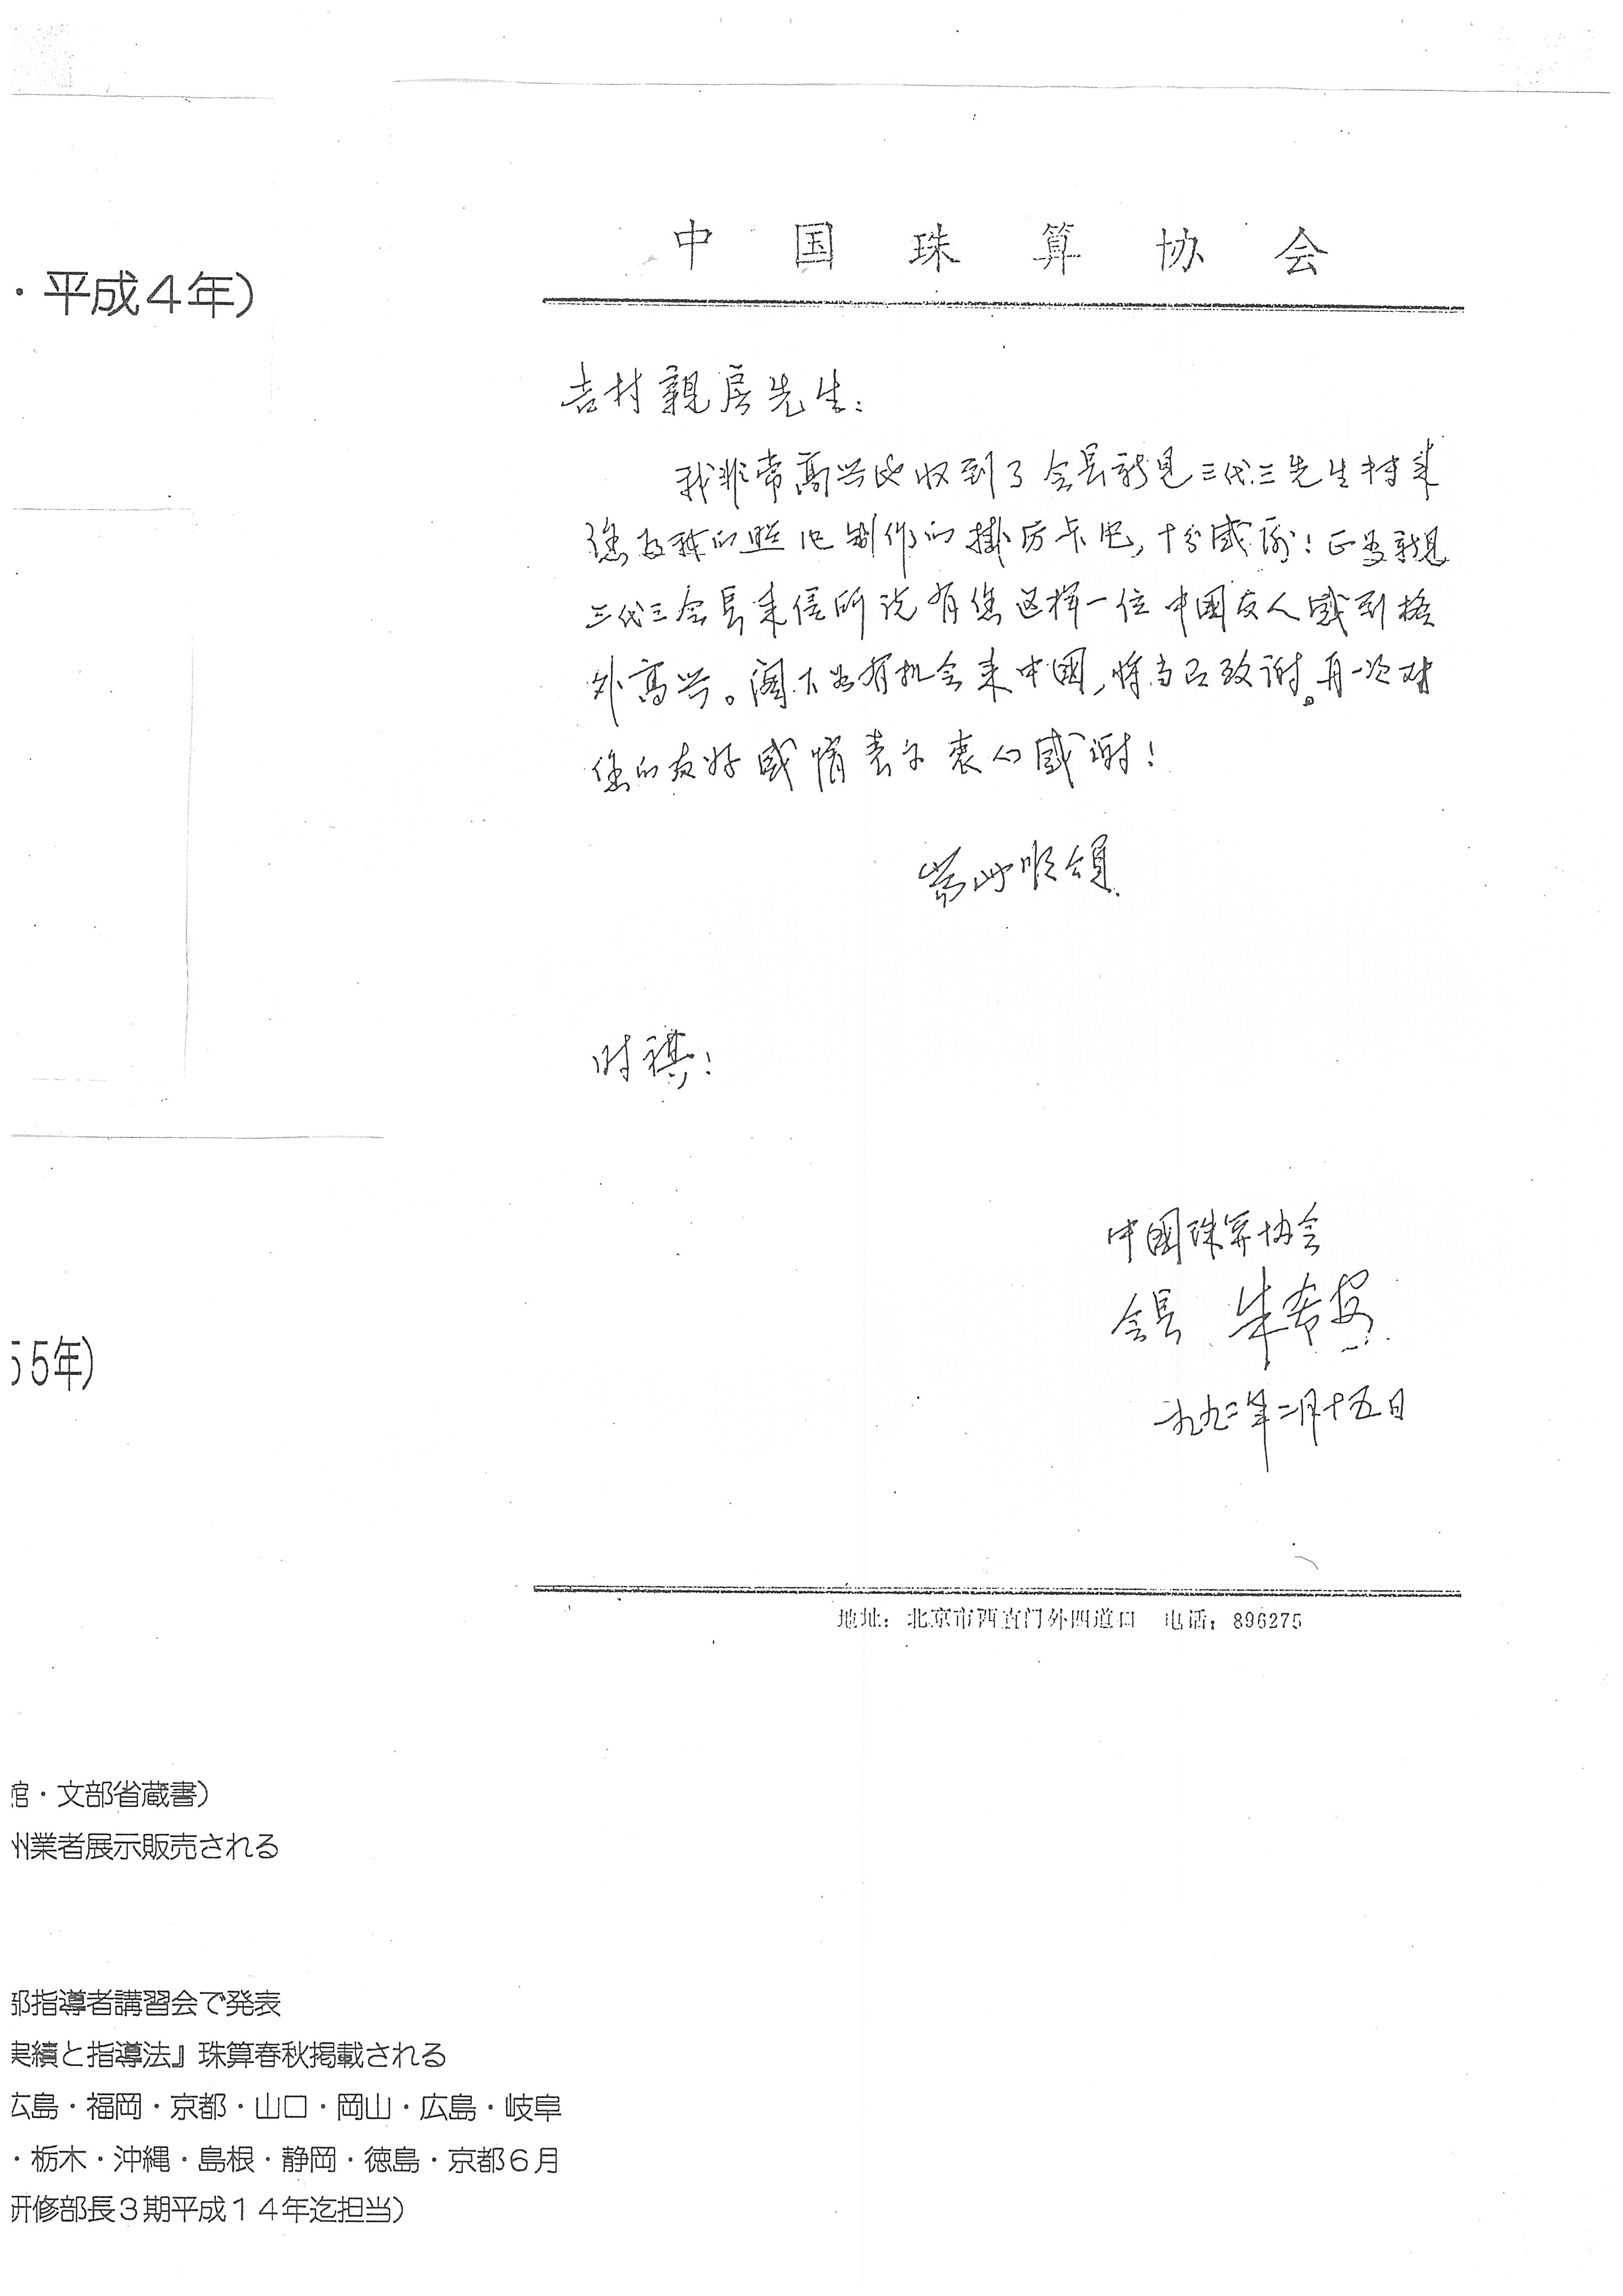 ・平成４年）
中国珠算协会
吉村親房先生：
我非常高兴地收到了会長新見三代三先生转来
您为我的照片制作的掛历卡片，十分感谢！正如新見
三代三会長来信所说有您这样一位中国友人感到格
外高兴。阁下如有机会来中國，将当面致谢。再一次对
您的友好感情表示衷心感谢！
崇此顺頌
时祺！
中國珠算协会
会長 朱希安
一九九二年二月十五日
5５年）
地址：北京市西直门外四道口 电话：896275
館・文部省蔵書）
州業者展示販売される
部指導者講習会で発表
実績と指導法』珠算春秋掲載される
広島・福岡・京都・山口・岡山・広島・岐阜
・栃木・沖縄・島根・静岡・徳島・京都６月
研修部長３期平成１４年迄担当）